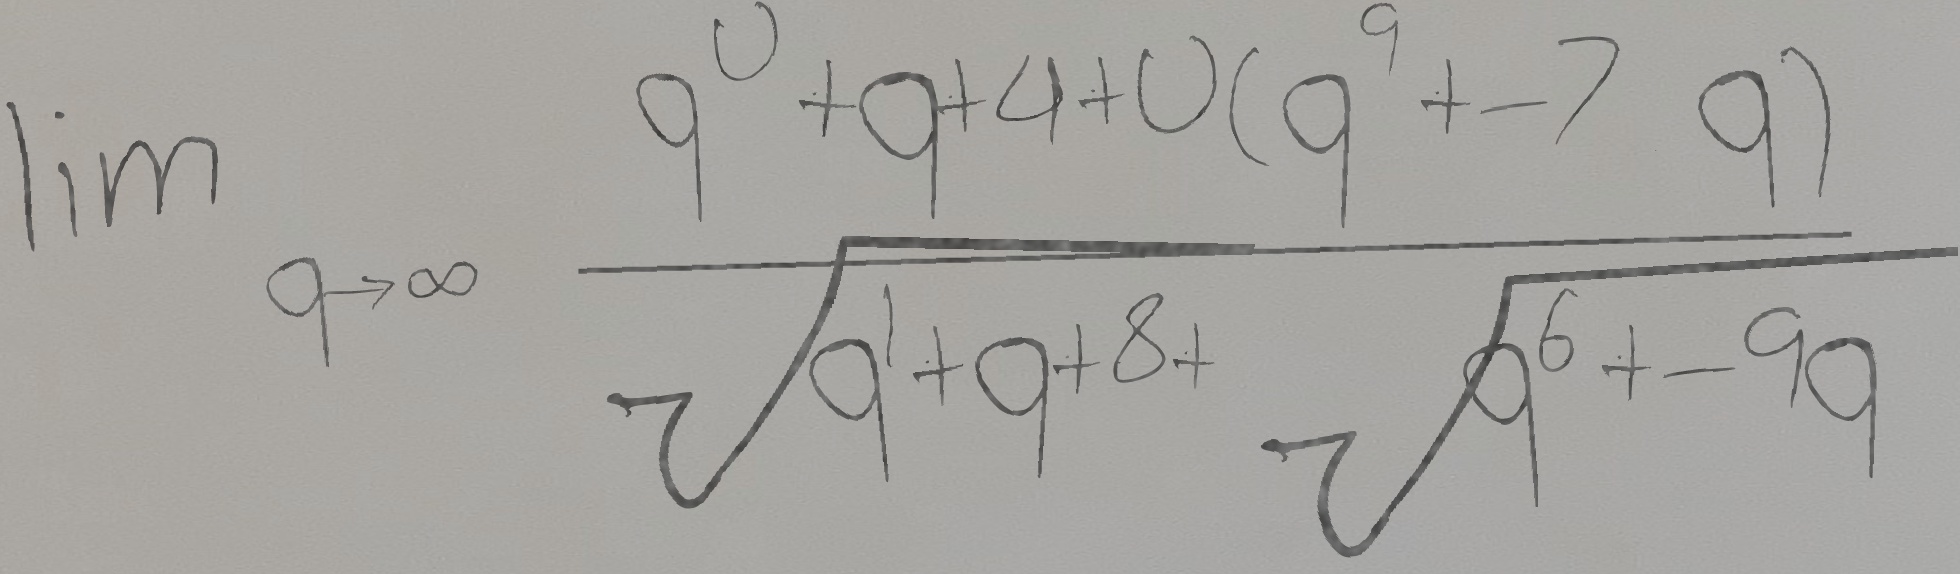 lim q→∞ (q^0 + q + 4 + 0(q^9 + -7 q)) / (√(q^1 + q + 8 +) √(q^6 + -9q))